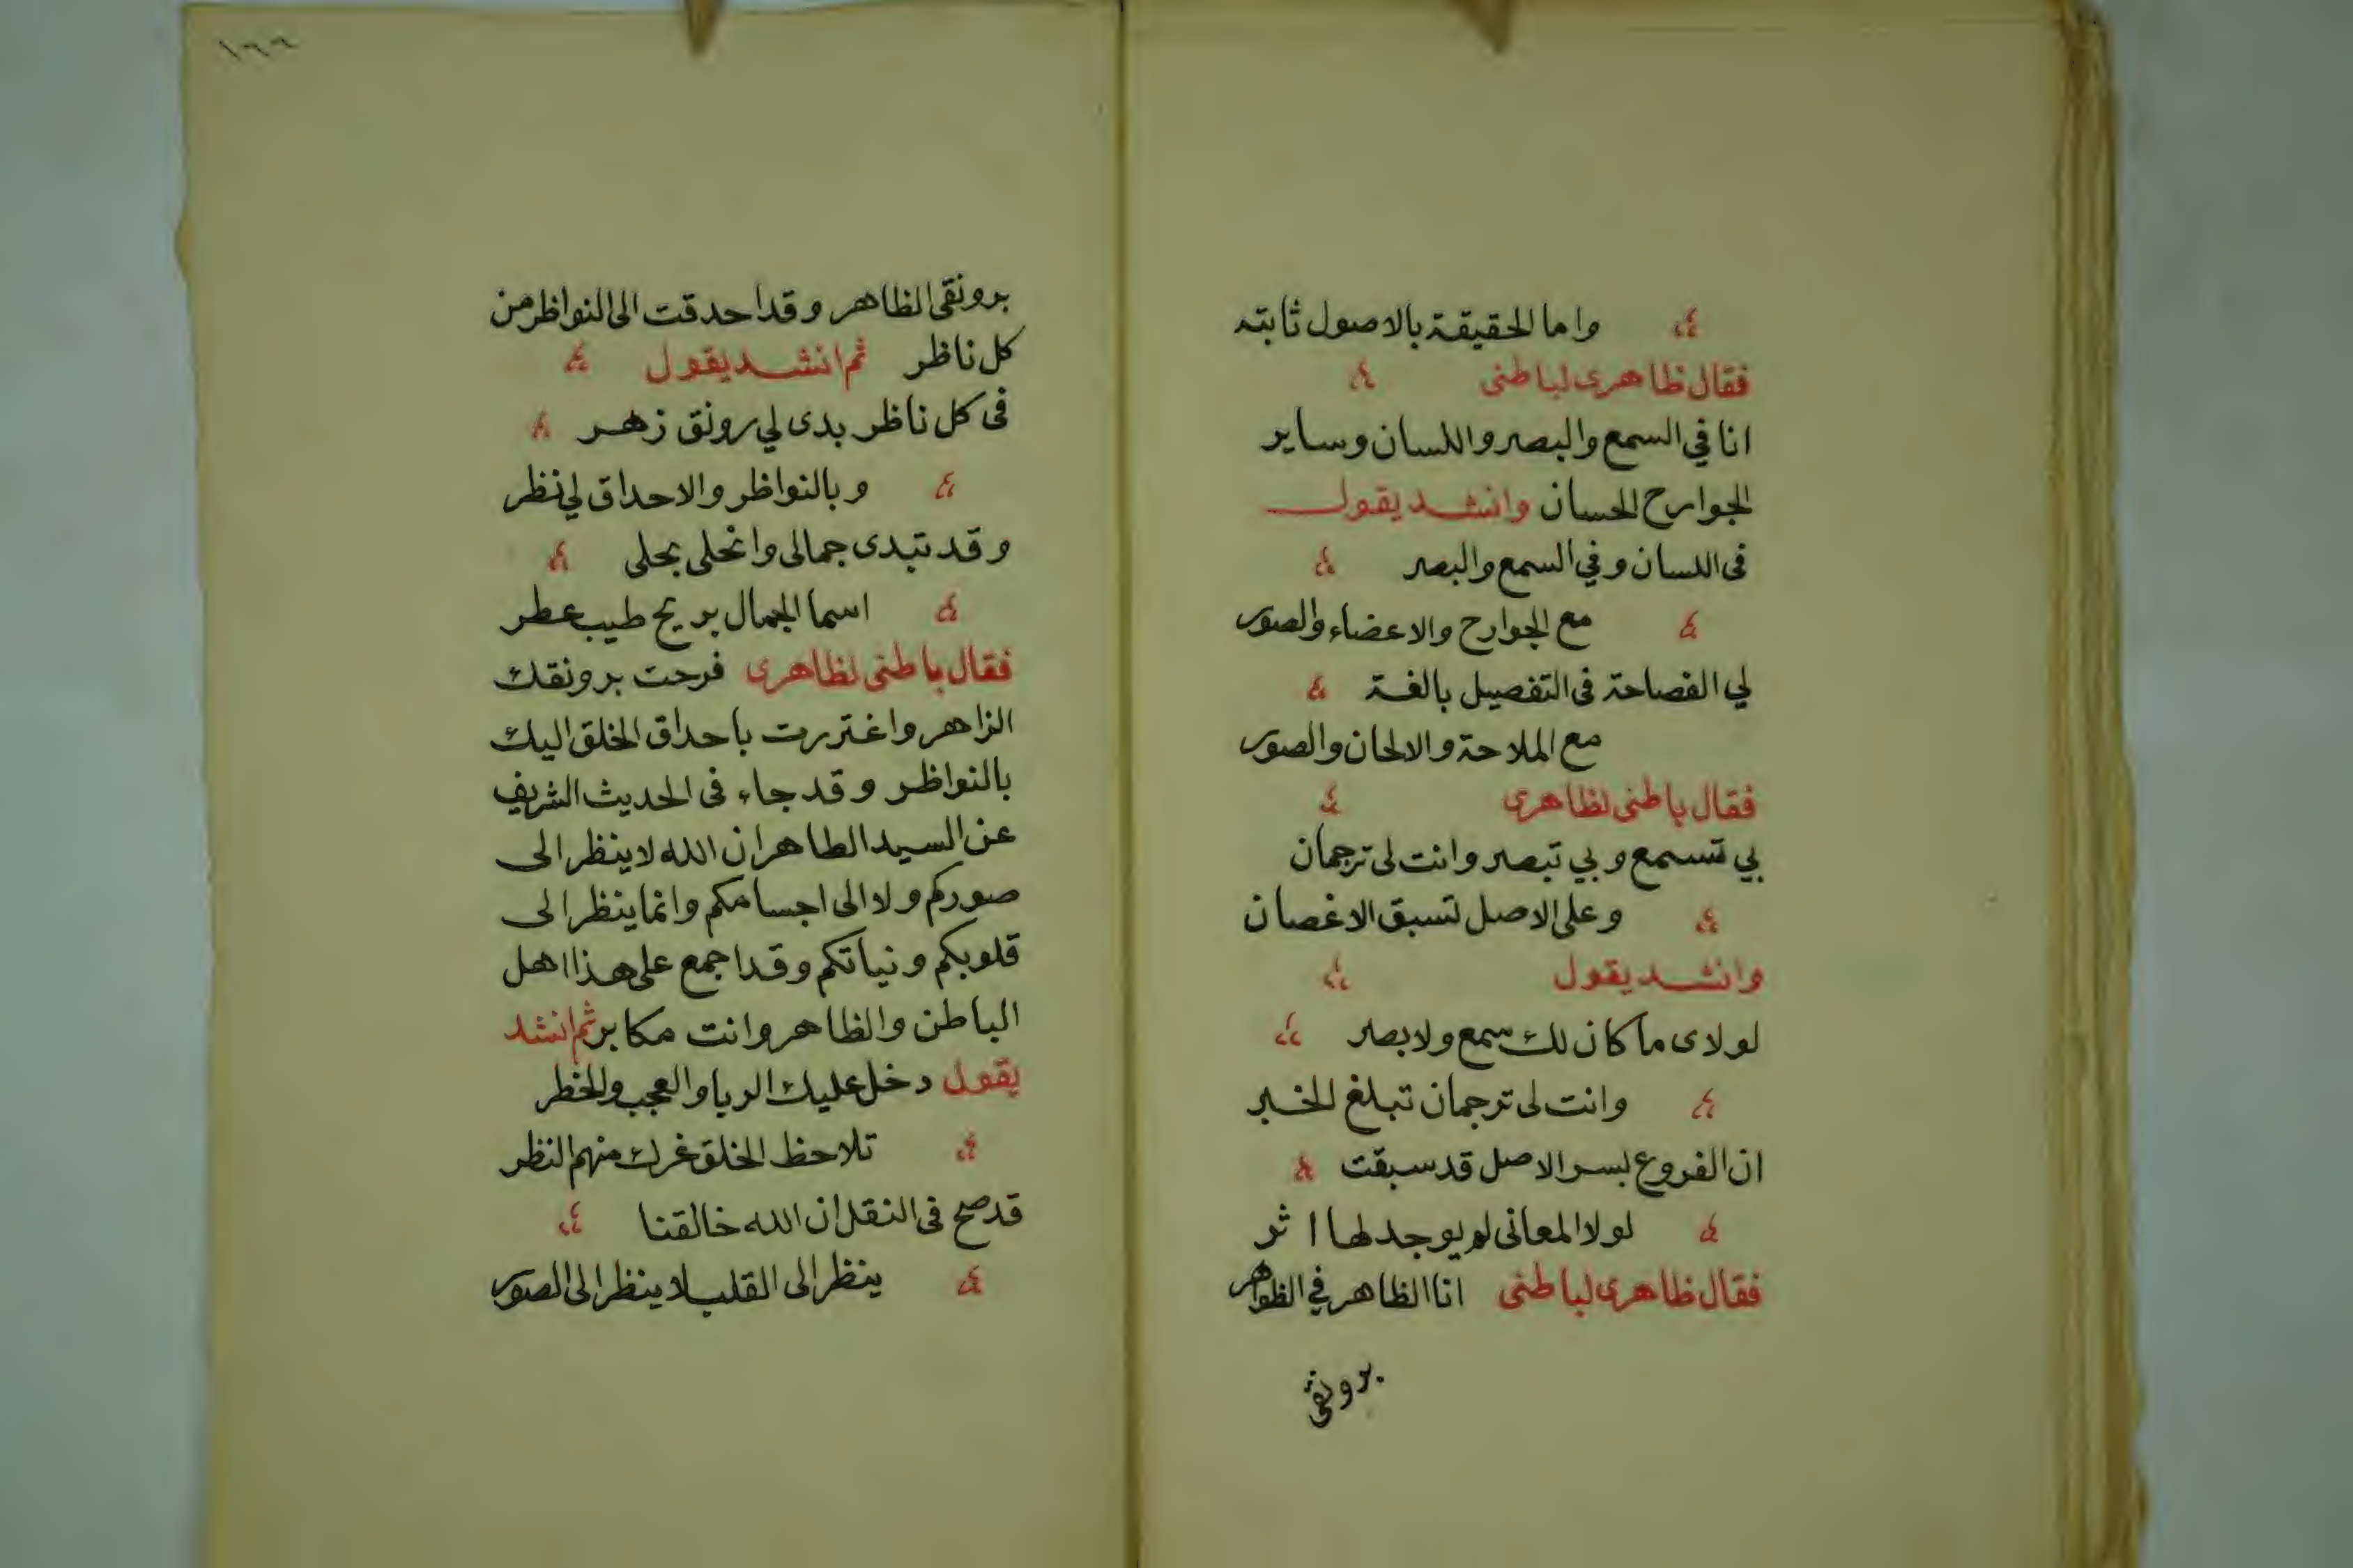 واما الحقيقة بالاصول ثابته
فقال ظاهرى لباطنى
انا في السمع والبصر واللسان وساير
الجوارح الحسان وانشد يقول
فى اللسان وفي السمع والبصر
مع الجوارح والاعضاء والصور
لي الفصاحة فى التفصيل بالغة
مع الملاحة والالحان والصور
فقال باطنى لظاهرى
بي تسمع وبي تبصر وانت لى ترجمان
وعلى الاصل تسبق الاغصان
وانشد يقول
لولاى ماكان لك سمع ولا بصر
وانت لى ترجمان تبلغ الخبر
ان الفروع بسر الاصل قد سبقت
لولا المعانى لم يوجد لها اثر
فقال ظاهرى لباطنى انا الظاهر في الظواهر
برونقى
١٦٦
برونقى الظاهر وقد احدقت الى النواظر من
كل ناظر ثم انشد يقول
فى كل ناظر بدى لي رونق زهر
وبالنواظر والاحداق لي نظر
وقد تبدى جمالى وانجلى بحلى
اسما الجمال بريح طيب عطر
فقال باطنى لظاهرى فرحت برونقك
الزاهر واغتررت باحداق الخلق اليك
بالنواظر وقد جاء فى الحديث الشريف
عن السيد الطاهر ان الله لا ينظر الى
صوركم ولا الى اجسامكم وانما ينظر الى
قلوبكم ونياتكم وقد اجمع على هذا اهل
الباطن والظاهر وانت مكابر ثم انشد
يقول دخل عليك الريا والعجب والخطر
تلاحظ الخلق غرك منهم النظر
قد صح فى النقل ان الله خالقنا
ينظر الى القلب لا ينظر الى الصور